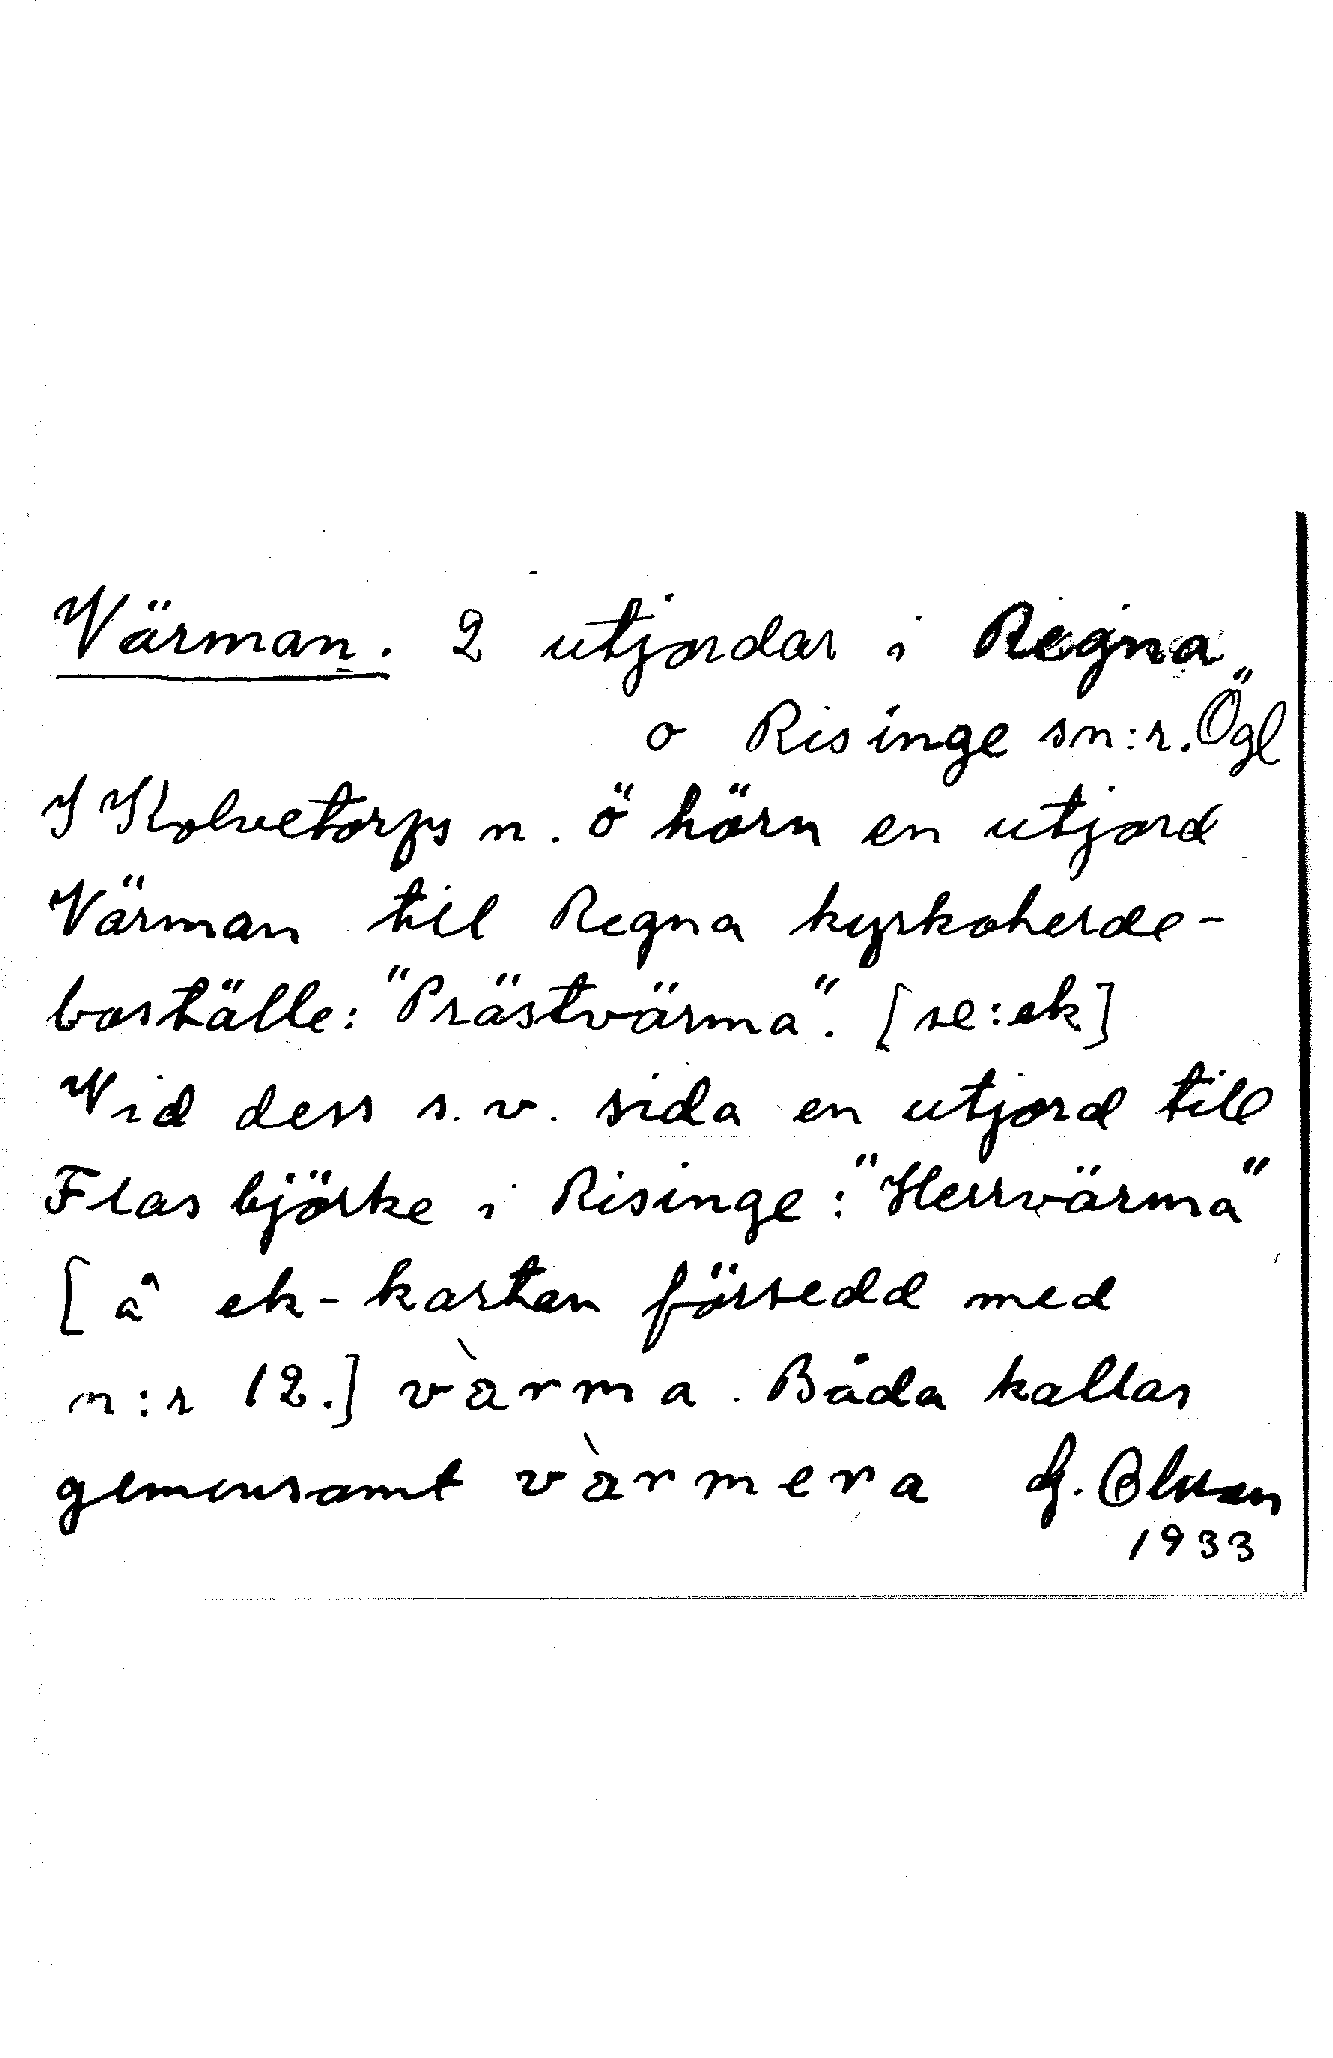 Värman. 2 utjordar i Regna
o Risinge sn:r. Ögl
I Kolvetorps n. ö hörn en utjord
Värman till Regna kyrkoherde-
boställe: "Prästvärma". [se:ek]
Vid dess s.v. sida en utjord till
Flasbjörke i Risinge: "Herrvärma"
[å ek-kartan försedd med
n:r 12.] vàrma. Båda kallas
gemensamt vàrmera G. Olsson
1933